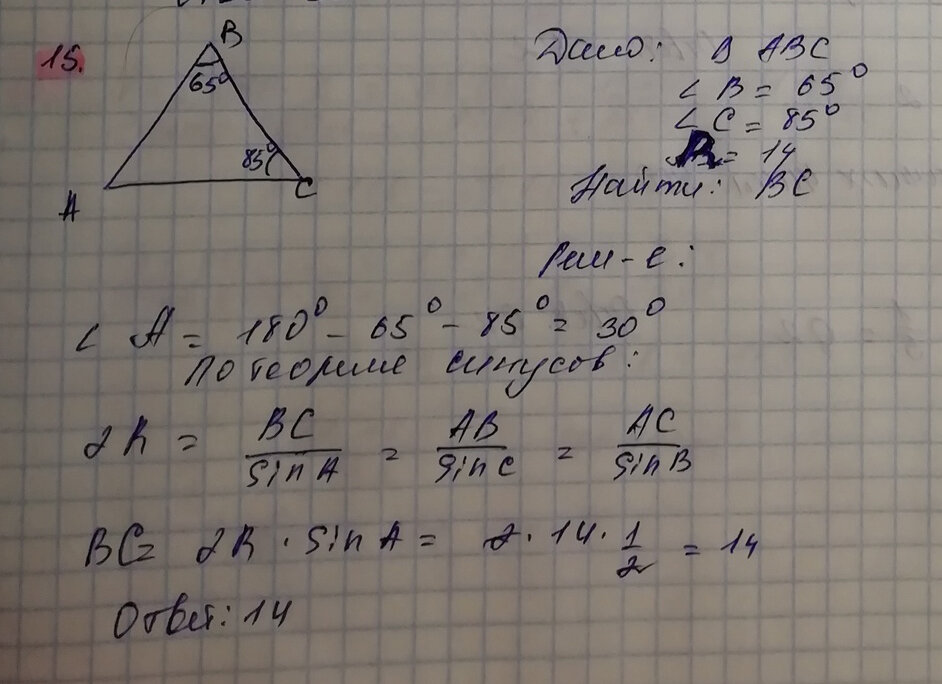 15.
B
65°
85°
A
C
Дано: Δ ABC
∠ B = 65°
∠ C = 85°
R = 14
Найти: BC
Реш-е:
∠ A = 180° - 65° - 85° = 30°
По теореме синусов:
2R = BC/sin A = AB/sin C = AC/sin B
BC = 2R · sin A = 2 · 14 · 1/2 = 14
Ответ: 14